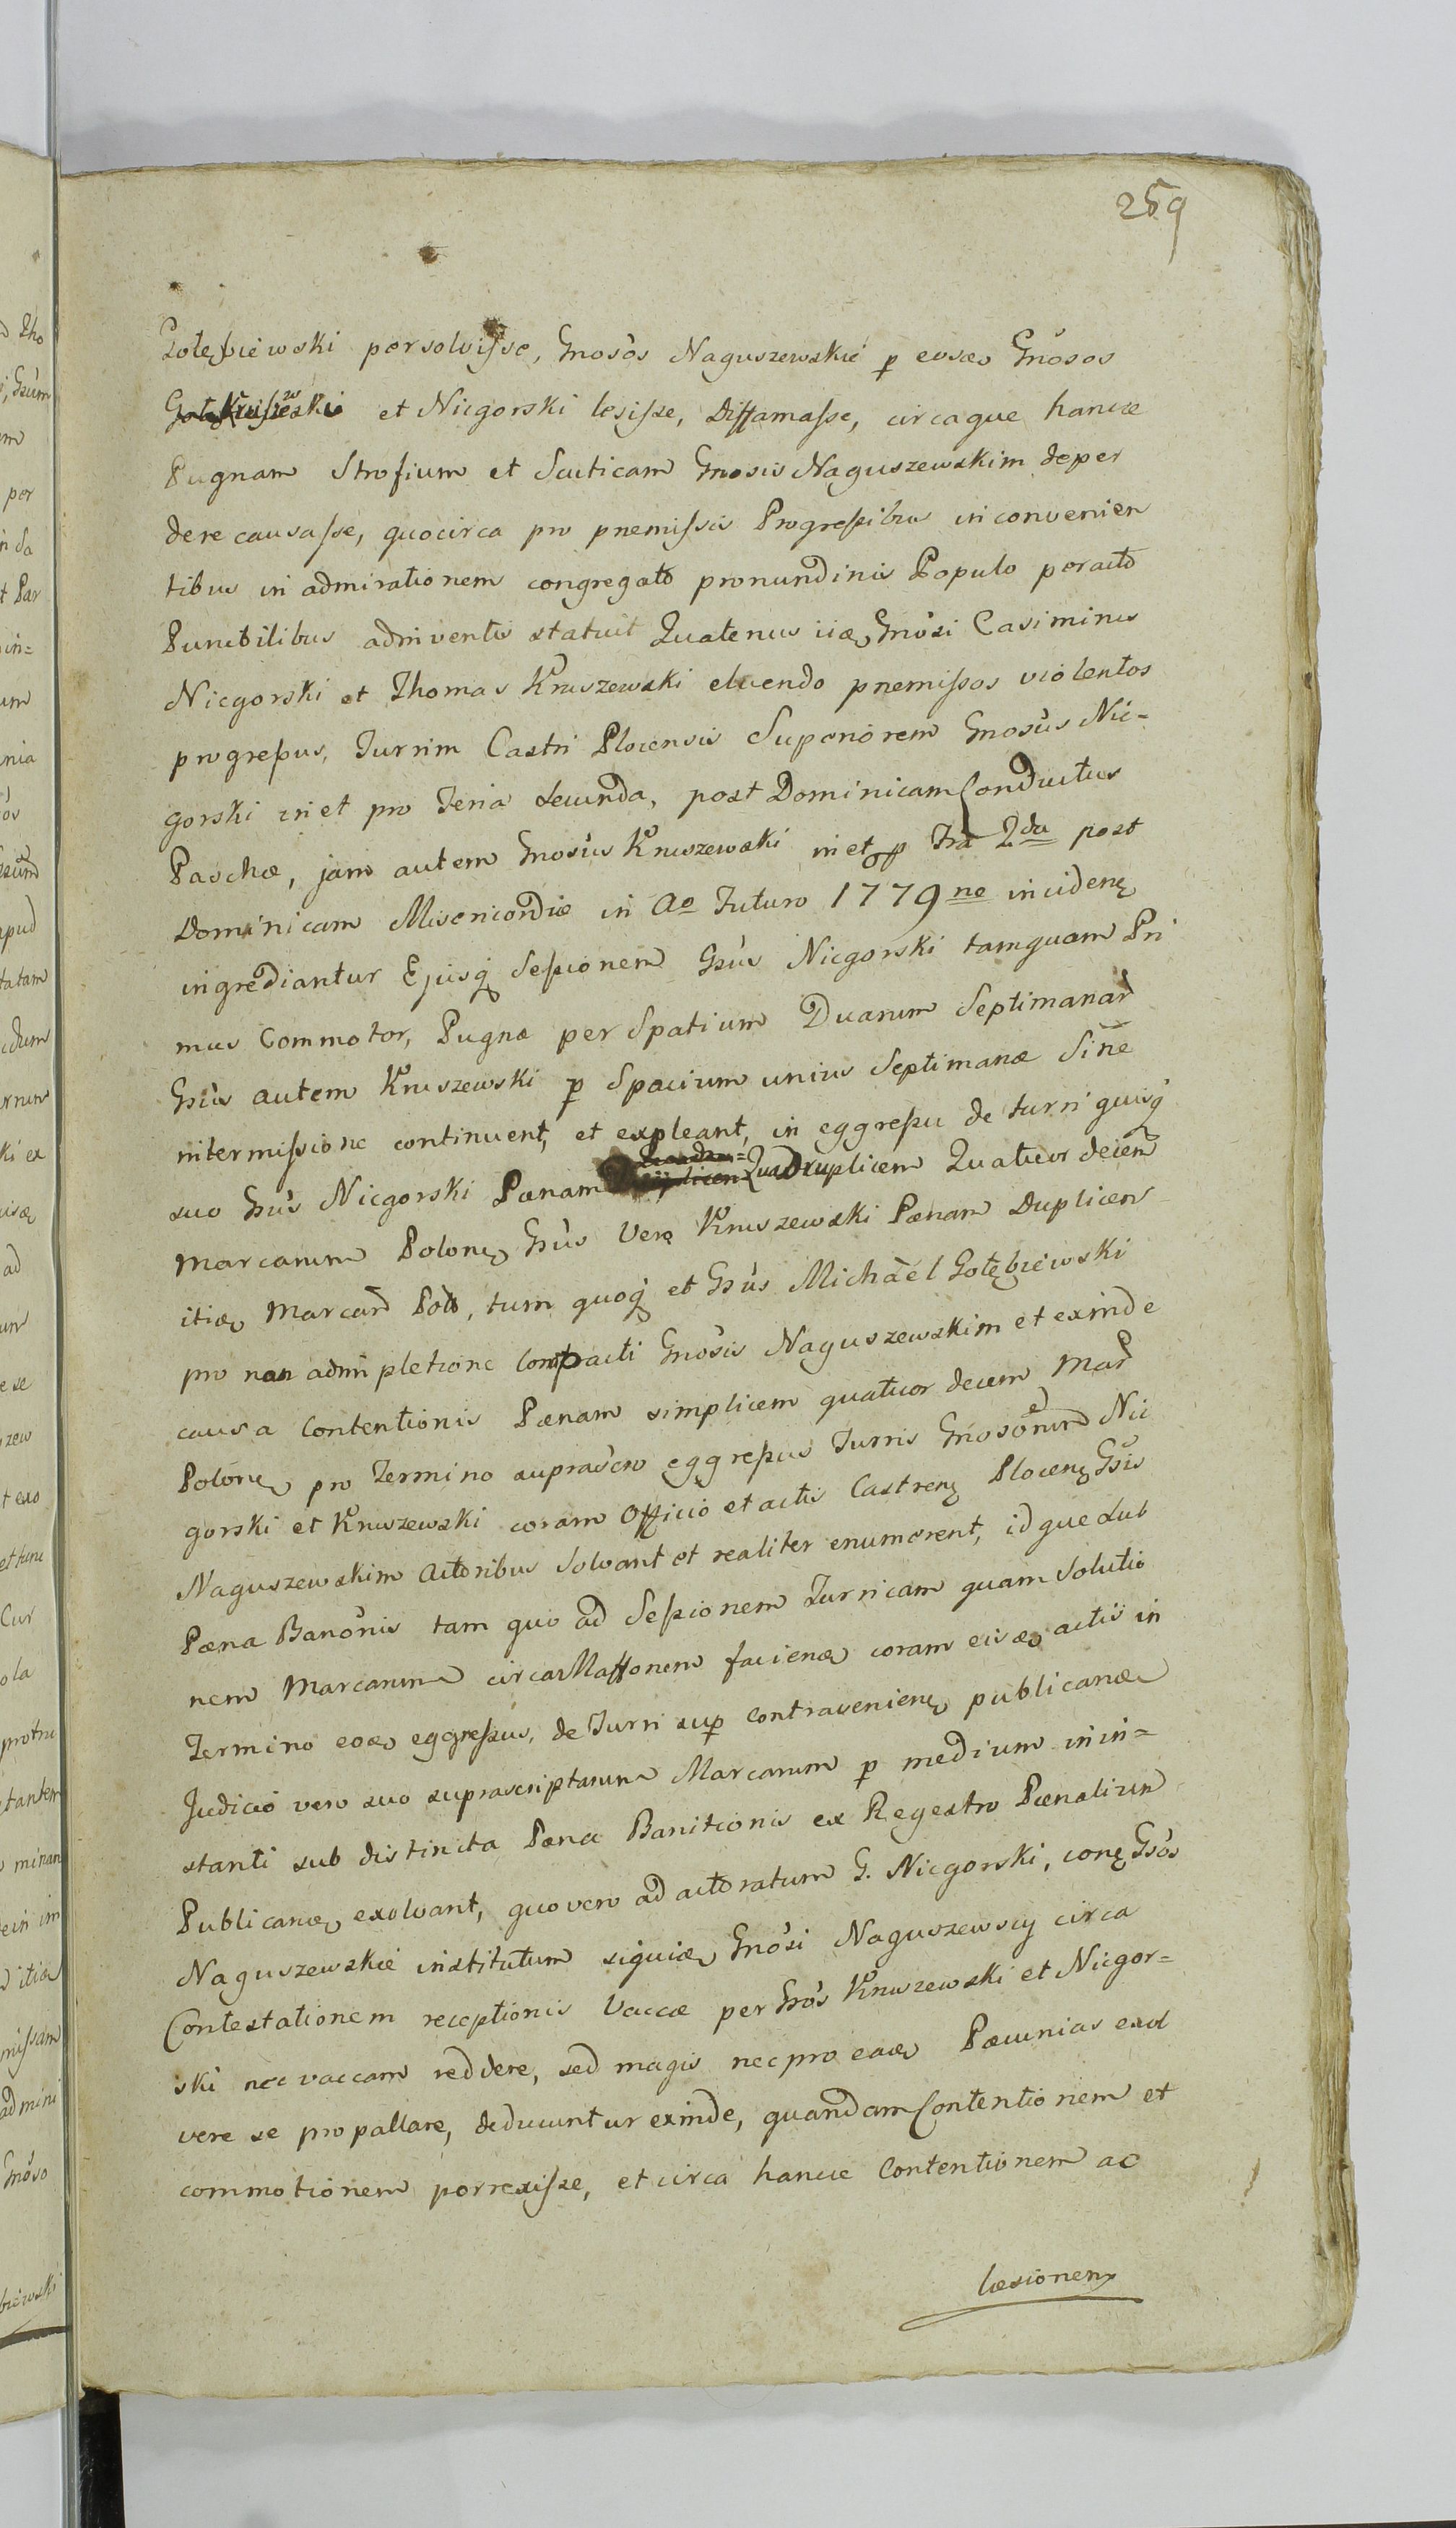 259
Gołębiewski persolvisse, Gnosos Naguszewskie p eosdem Gnosos
Kruszewski et Nicgorski lesisse, Diffamasse, circaque hancce
Pugnam Strofium et Scuticam Gnosis Naguszewskim deper
dere causasse, quocirca pro premissis Progressibus inconvenien
tibus in admirationem congregato pronundinis Populo peracto
Punibilibus adinventis statuit Quatenus iidem Gnosi Casimirus
Nicgorski et Thomas Kruszewski eluendo premissos violentos
progressus, Turrim Castri Plocensis Superiorem Gnosus Nic=
gorski in et pro Feria Secunda, post Dominicam Conductus
Paschæ, jam autem Gnosus Kruszewski in et p Fra 2da post
Dominicam Misericordiæ in Ao Futuro 1779no inciden
ingrediantur Ejusq Sessionem Gsus Nicgorski tamquam Pri
mus Commotor, Pugnæ per Spatium Duarum Septimanar
Gsus autem Kruszewski p Spacium unius Septimanæ Sine
intermissione continuent, et expleant, in eggressu de turri quisq
suo Gsus Nicgorski Pænam Quadruplicem Quatuor decem
Marcarum Polon Gsus Vero Kruszewski Pænam Duplicem
itidem Marcar Pol, tum quoq et Gsus Michaël Gołębiewski
pro non adimpletione Contracti Gnosis Naguszewskim et exinde
causa Contentionis Pænam simplicem quatuor decem Mar
Polon pro Termino suprascro eggressus Turris Gnosorum Nic
gorski et Kruszewski coram Officio et actis Castren Plocen Gsis
Naguszewskim Actoribus Solvant et realiter enumerent, idque Sub
Pæna Banonis tam quo ad Sessionem Turricam quam Solutio
nem Marcarum circa Maffonem faciend coram eisdem actis in
Termino eodem eggressus, de Turri sup contravenien publicand
Judicio vero suo suprascriptarum Marcarum p medium in in=
stanti sub distincta Pæna Banitionis ex Regestro Pænalium
Publicand exolvant, quo vero ad actoratum G. Nicgorski, con Gsos
Naguszewskie institutum siquidem Gnosi Naguszewscy circa
Contestationem receptionis Vaccæ per Gsos Kruszewski et Nicgor=
ski nec vaccam reddere, sed magis nec pro eadem Pæcunias exol
vere se propallare, deducuntur exinde, quandam Contentionem et
commotionem porrexisse, et circa hancce Contentionem ac
læsionem